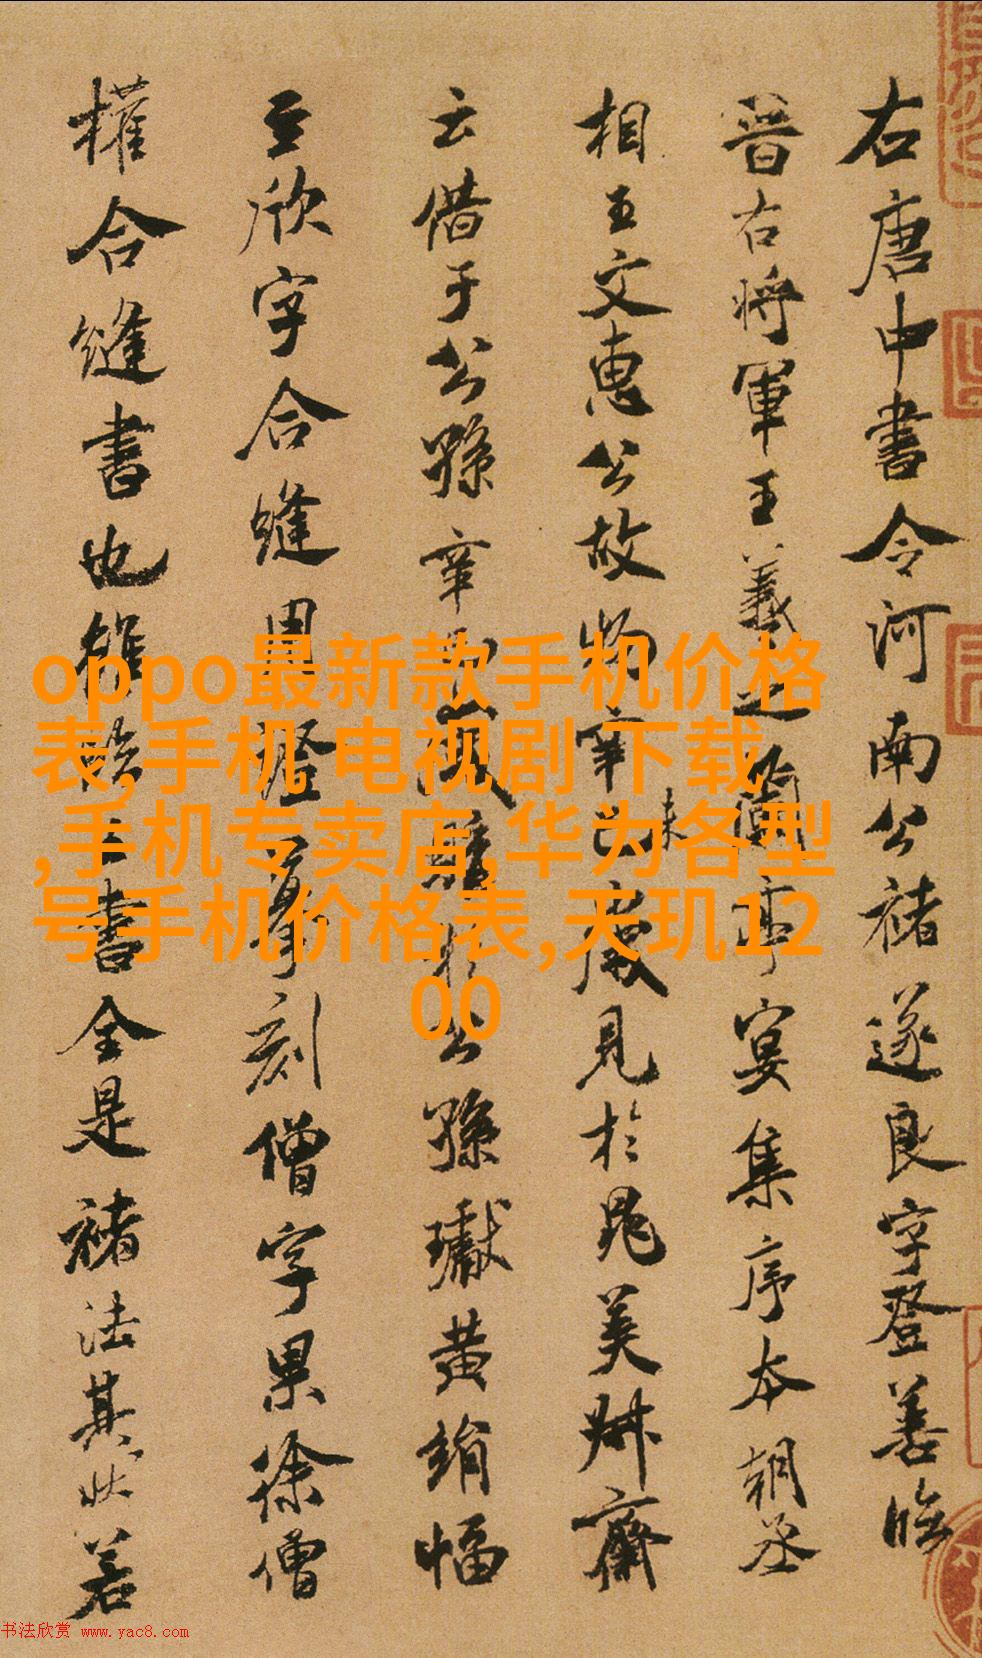 右唐中書令河南公褚遂良字登善臨
晉右將軍王羲之蘭亭宴集序本朝丞
相王文惠公故物辛巳歲見於晁美叔齋
未
云借于公孫 於公孫瓛黃絹幅
至欣字合縫用證摹刻僧字果徐僧
權合縫書也雖臨王書全是褚法其狀若
oppo最新款手机价格
表,手机 电视剧 下载
,手机专卖店,华为各型
号手机价格表,天玑12
00
书法欣赏 www.yac8.com